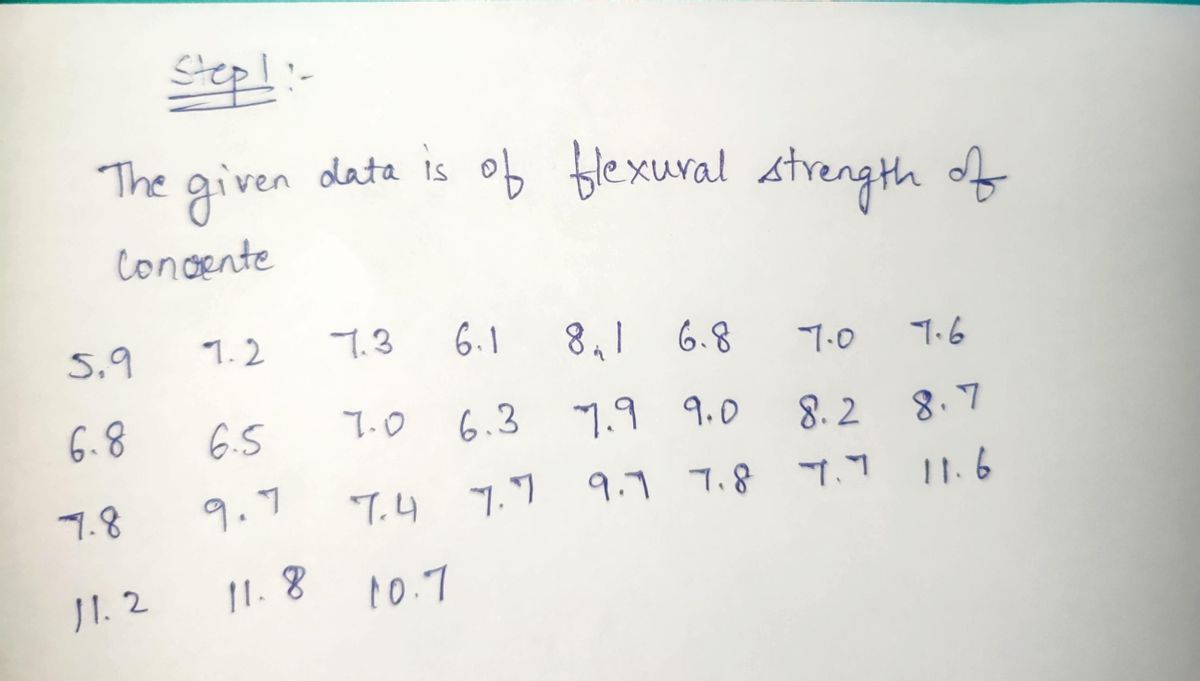 Step 1 :-
The given data is of flexural strength of
Concrente
5.9 7.2 7.3 6.1 8.1 6.8 7.0 7.6
6.8 6.5 7.0 6.3 7.9 9.0 8.2 8.7
7.8 9.7 7.4 7.7 9.7 7.8 7.7 11.6
11.2 11.8 10.7